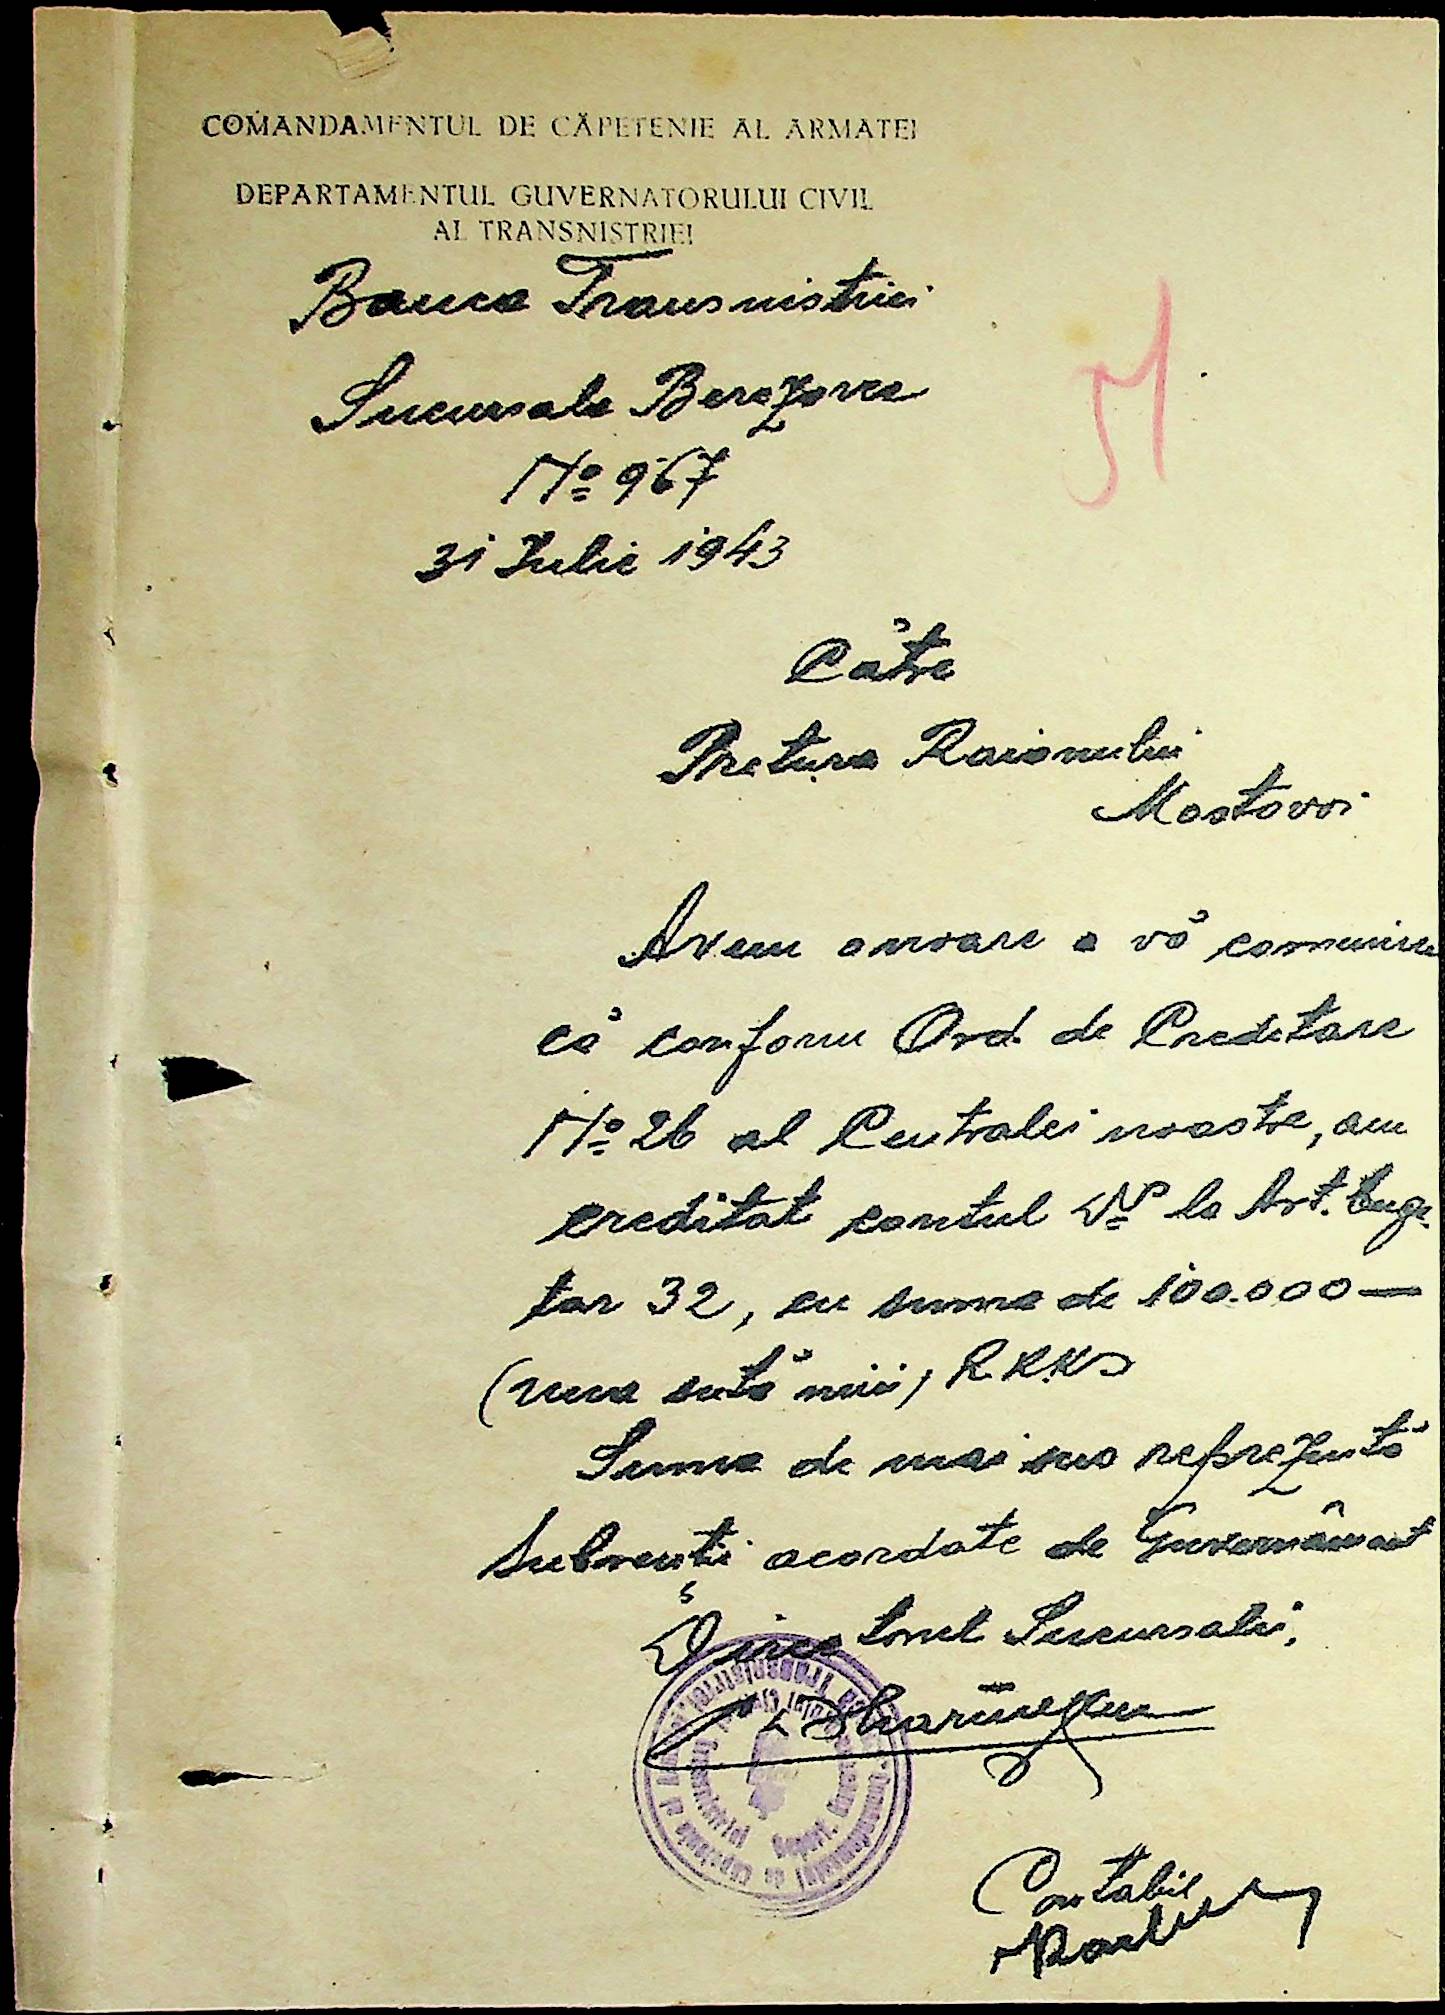 COMANDAMENTUL DE CĂPETENIE AL ARMATEI
DEPARTAMENTUL GUVERNATORULUI CIVIL
AL TRANSNISTRIEI
Banca Transnistriei
Sucursala Berezovca
No 967
31 Iulie 1943
51
Către
Pretura Raionului
Mostovoi
Avem onoare a vă comunica
că conform Ord. de Creditare
No 26 al Centralei noastre, am
creditat contul Dv la Art. buge
tar 32, cu suma de 100.000 —
(una sută mii) R.K.K.S
Suma de mai sus reprezintă
Subvenții acordate de Guvernământ
Directorul Sucursalei,
Contabil